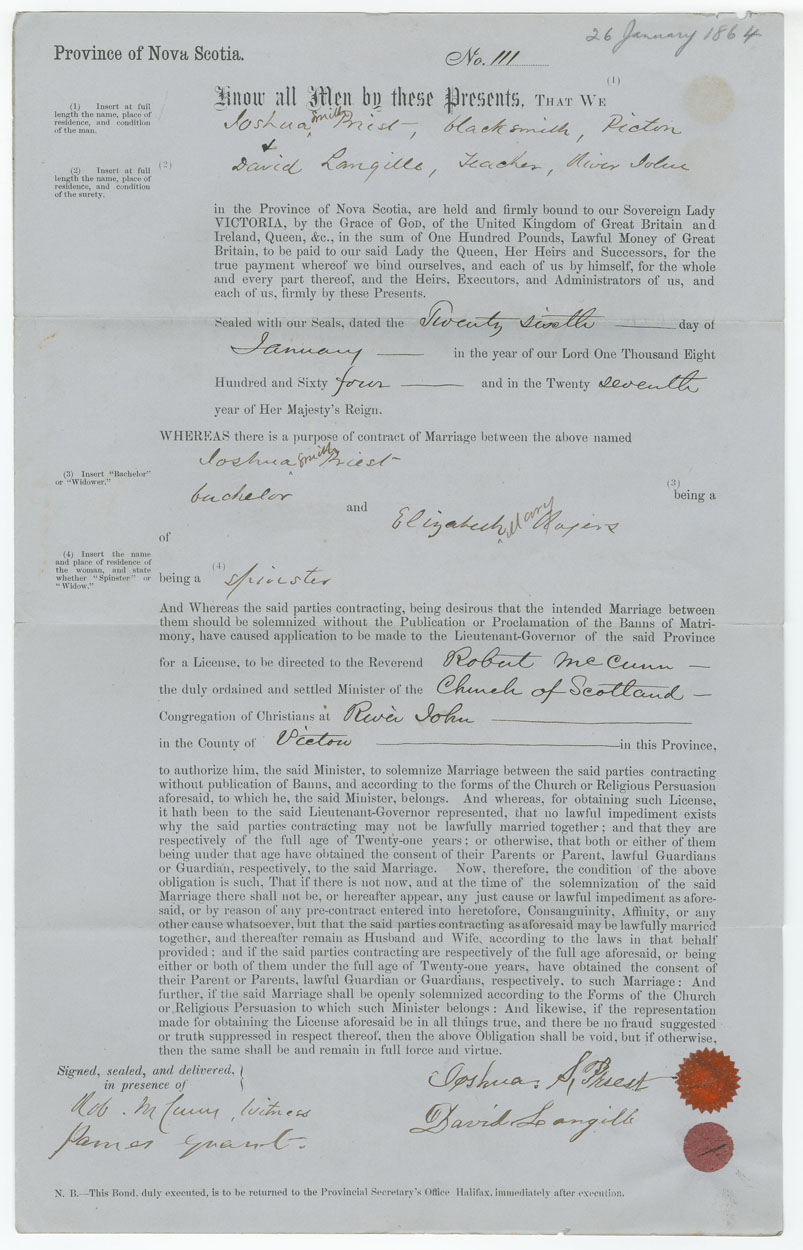 26 January 1864
Province of Nova Scotia.
No. 111
(1)
Know all Men by these Presents, THAT WE
(1) Insert at full
length the name, place of
residence, and condition
of the man.
Joshua Smith Priest, blacksmith, Pictou
&
(2) Insert at full
length the name, place of
residence, and condition
of the surety.
(2)
David Langille, Teacher, River John
in the Province of Nova Scotia, are held and firmly bound to our Sovereign Lady
VICTORIA, by the Grace of GOD, of the United Kingdom of Great Britain and
Ireland, Queen, &c., in the sum of One Hundred Pounds, Lawful Money of Great
Britain, to be paid to our said Lady the Queen, Her Heirs and Successors, for the
true payment whereof we bind ourselves, and each of us by himself, for the whole
and every part thereof, and the Heirs, Executors, and Administrators of us, and
each of us, firmly by these Presents.
Sealed with our Seals, dated the Twenty sixth day of
January in the year of our Lord One Thousand Eight
Hundred and Sixty four and in the Twenty seventh
year of Her Majesty's Reign.
WHEREAS there is a purpose of contract of Marriage between the above named
Joshua Smith Priest
(3) Insert "Bachelor"
or "Widower."
(3)
being a
bachelor
and
Elizabeth Mary Rogers
of
(4) Insert the name
and place of residence of
the woman, and state
whether "Spinster" or
"Widow."
(4)
being a spinster
And Whereas the said parties contracting, being desirous that the intended Marriage between
them should be solemnized without the Publication or Proclamation of the Banns of Matri-
mony, have caused application to be made to the Lieutenant-Governor of the said Province
for a License, to be directed to the Reverend Robert McCunn
the duly ordained and settled Minister of the Church of Scotland
Congregation of Christians at River John
in the County of Pictou in this Province,
to authorize him, the said Minister, to solemnize Marriage between the said parties contracting
without publication of Banns, and according to the forms of the Church or Religious Persuasion
aforesaid, to which he, the said Minister, belongs. And whereas, for obtaining such License,
it hath been to the said Lieutenant-Governor represented, that no lawful impediment exists
why the said parties contracting may not be lawfully married together; and that they are
respectively of the full age of Twenty-one years; or otherwise, that both or either of them
being under that age have obtained the consent of their Parents or Parent, lawful Guardians
or Guardian, respectively, to the said Marriage. Now, therefore, the condition of the above
obligation is such, That if there is not now, and at the time of the solemnization of the said
Marriage there shall not be, or hereafter appear, any just cause or lawful impediment as afore-
said, or by reason of any pre-contract entered into heretofore, Consanguinity, Affinity, or any
other cause whatsoever, but that the said parties contracting as aforesaid may be lawfully married
together, and thereafter remain as Husband and Wife, according to the laws in that behalf
provided; and if the said parties contracting are respectively of the full age aforesaid, or being
either or both of them under the full age of Twenty-one years, have obtained the consent of
their Parent or Parents, lawful Guardian or Guardians, respectively, to such Marriage: And
further, if the said Marriage shall be openly solemnized according to the Forms of the Church
or Religious Persuasion to which such Minister belongs: And likewise, if the representation
made for obtaining the License aforesaid be in all things true, and there be no fraud suggested
or truth suppressed in respect thereof, then the above Obligation shall be void, but if otherwise,
then the same shall be and remain in full force and virtue.
Signed, sealed, and delivered,
in presence of
Joshua. S. Priest
Rob. McCunn, Witness
David Langille
James Grant.
N. B.—This Bond, duly executed, is to be returned to the Provincial Secretary's Office Halifax, immediately after execution.